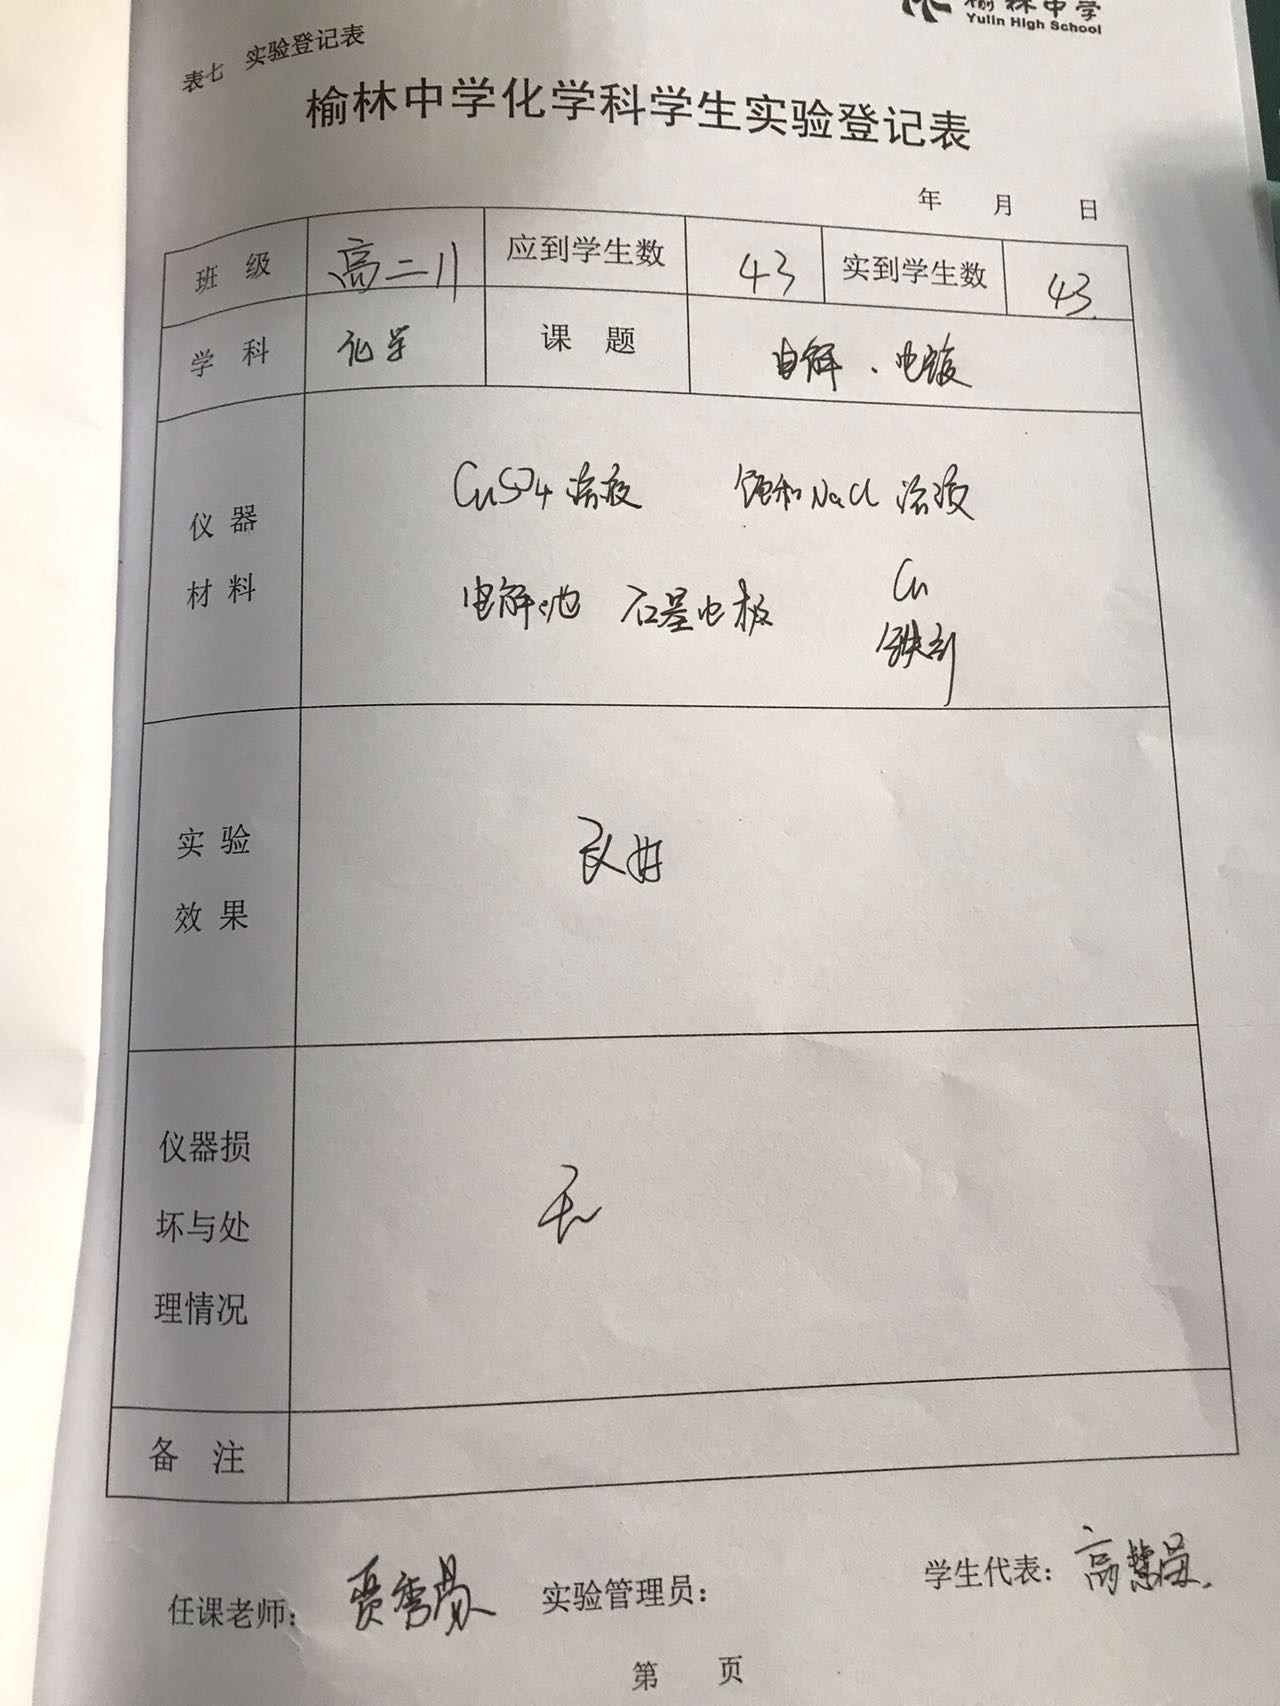 榆林中学
Yulin High School
表七 实验登记表
榆林中学化学科学生实验登记表
年 月 日
班 级 高二11 应到学生数 43 实到学生数 43.
学 科 化学 课 题 电解、电镀
仪 器
材 料
CuSO4溶液 饱和NaCl溶液
电解池 石墨电极 Cu
铁制
实 验
效 果
良好
仪器损
坏与处
理情况
无
备 注
任课老师: 贾秀 实验管理员: 学生代表: 高慧
第 页